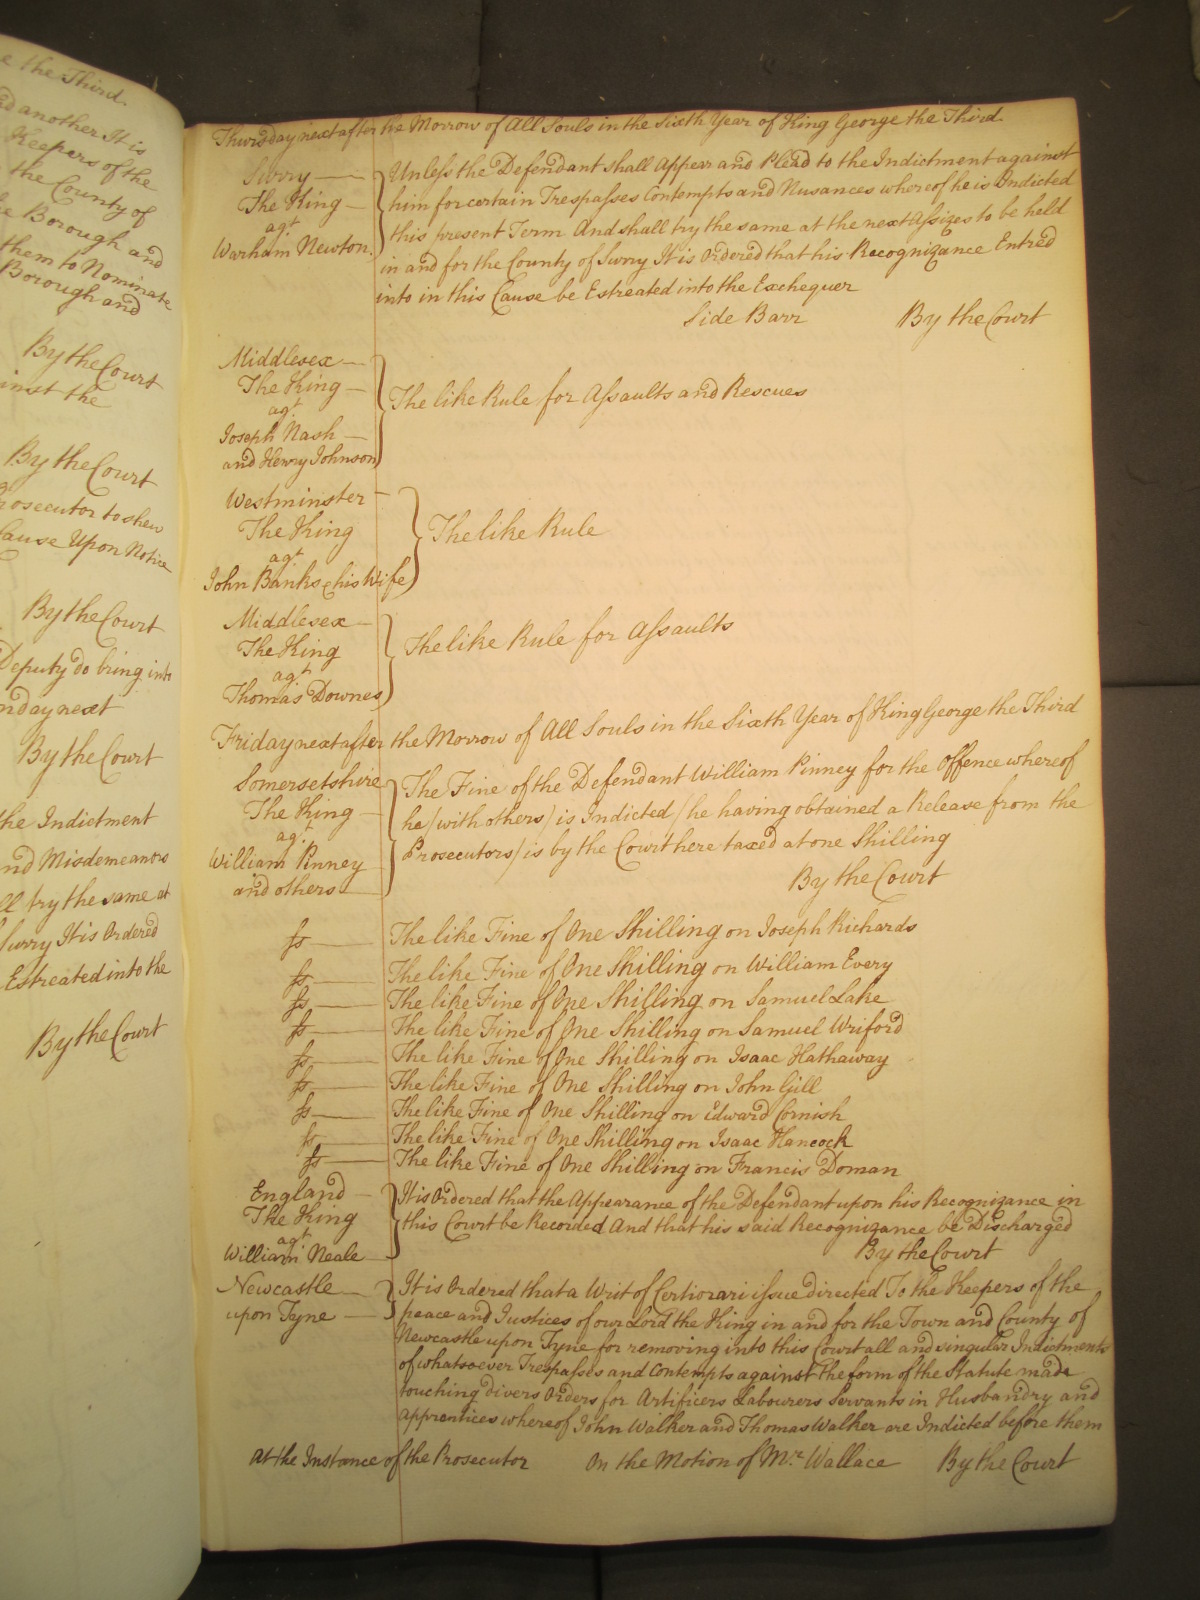 e the Third.
ed another It is
Keepers of the
the County of
he Borough and
them to Nominate
Borough and
By the Court
inst the
By the Court
Prosecutor to shew
Cause Upon Notice
By the Court
Deputy do bring into
nday next
By the Court
the Indictment
nd Misdemeanors
ll try the same at
Surry It is Ordered
Estreated into the
By the Court
Thursday next after the Morrow of All Souls in the Sixth Year of King George the Third.
Surry
The King
agt
Warham Newton.
Unless the Defendant shall Appear and Plead to the Indictment against
him for certain Trespasses Contempts and Nusances whereof he is Indicted
this present Term And shall try the same at the next Assizes to be held
in and for the County of Surry It is Ordered that his Recognizance Entred
into in this Cause be Estreated into the Exchequer
Side Barr By the Court
Middlesex
The King
agt
Joseph Nash
and Henry Johnson
The like Rule for Assaults and Rescues
Westminster
The King
agt
John Banks & his Wife
The like Rule
Middlesex
The King
agt
Thomas Downes
The like Rule for Assaults
Friday next after the Morrow of All Souls in the Sixth Year of King George the Third
Somersetshire
The King
agt
William Pinney
and others
The Fine of the Defendant William Pinney for the Offence whereof
he (with others) is Indicted (he having obtained a Release from the
Prosecutors) is by the Court here taxed at one Shilling
By the Court
ss The like Fine of One Shilling on Joseph Richards
ss The like Fine of One Shilling on William Every
ss The like Fine of One Shilling on Samuel Lake
ss The like Fine of One Shilling on Samuel Wriford
ss The like Fine of One Shilling on Isaac Hathaway
ss The like Fine of One Shilling on John Gill
ss The like Fine of One Shilling on Edward Cornish
ss The like Fine of One Shilling on Isaac Hancock
ss The like Fine of One Shilling on Francis Doman
England
The King
agt
William Neale
It is Ordered that the Appearance of the Defendant upon his Recognizance in
this Court be Recorded And that his said Recognizance be Discharged
By the Court
Newcastle
upon Tyne
It is Ordered that a Writ of Certiorari issue directed To the Keepers of the
peace and Justices of our Lord the King in and for the Town and County of
Newcastle upon Tyne for removing into this Court all and singular Indictments
of whatsoever Trespasses and Contempts against the form of the Statute made
touching divers Orders for Artificers Labourers Servants in Husbandry and
Apprentices whereof John Walker and Thomas Walker are Indicted before them
At the Instance of the Prosecutor On the Motion of Mr. Wallace By the Court